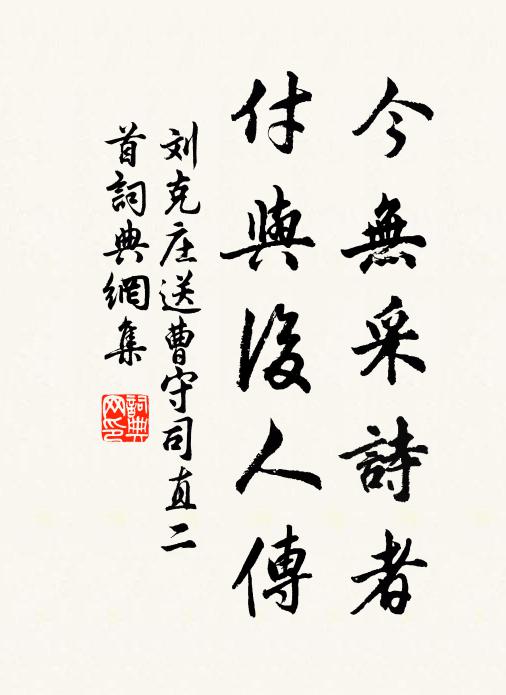 今無采詩者
付與後人傳
刘克庄送曹守司直二
首詞典網集
詞典
网印